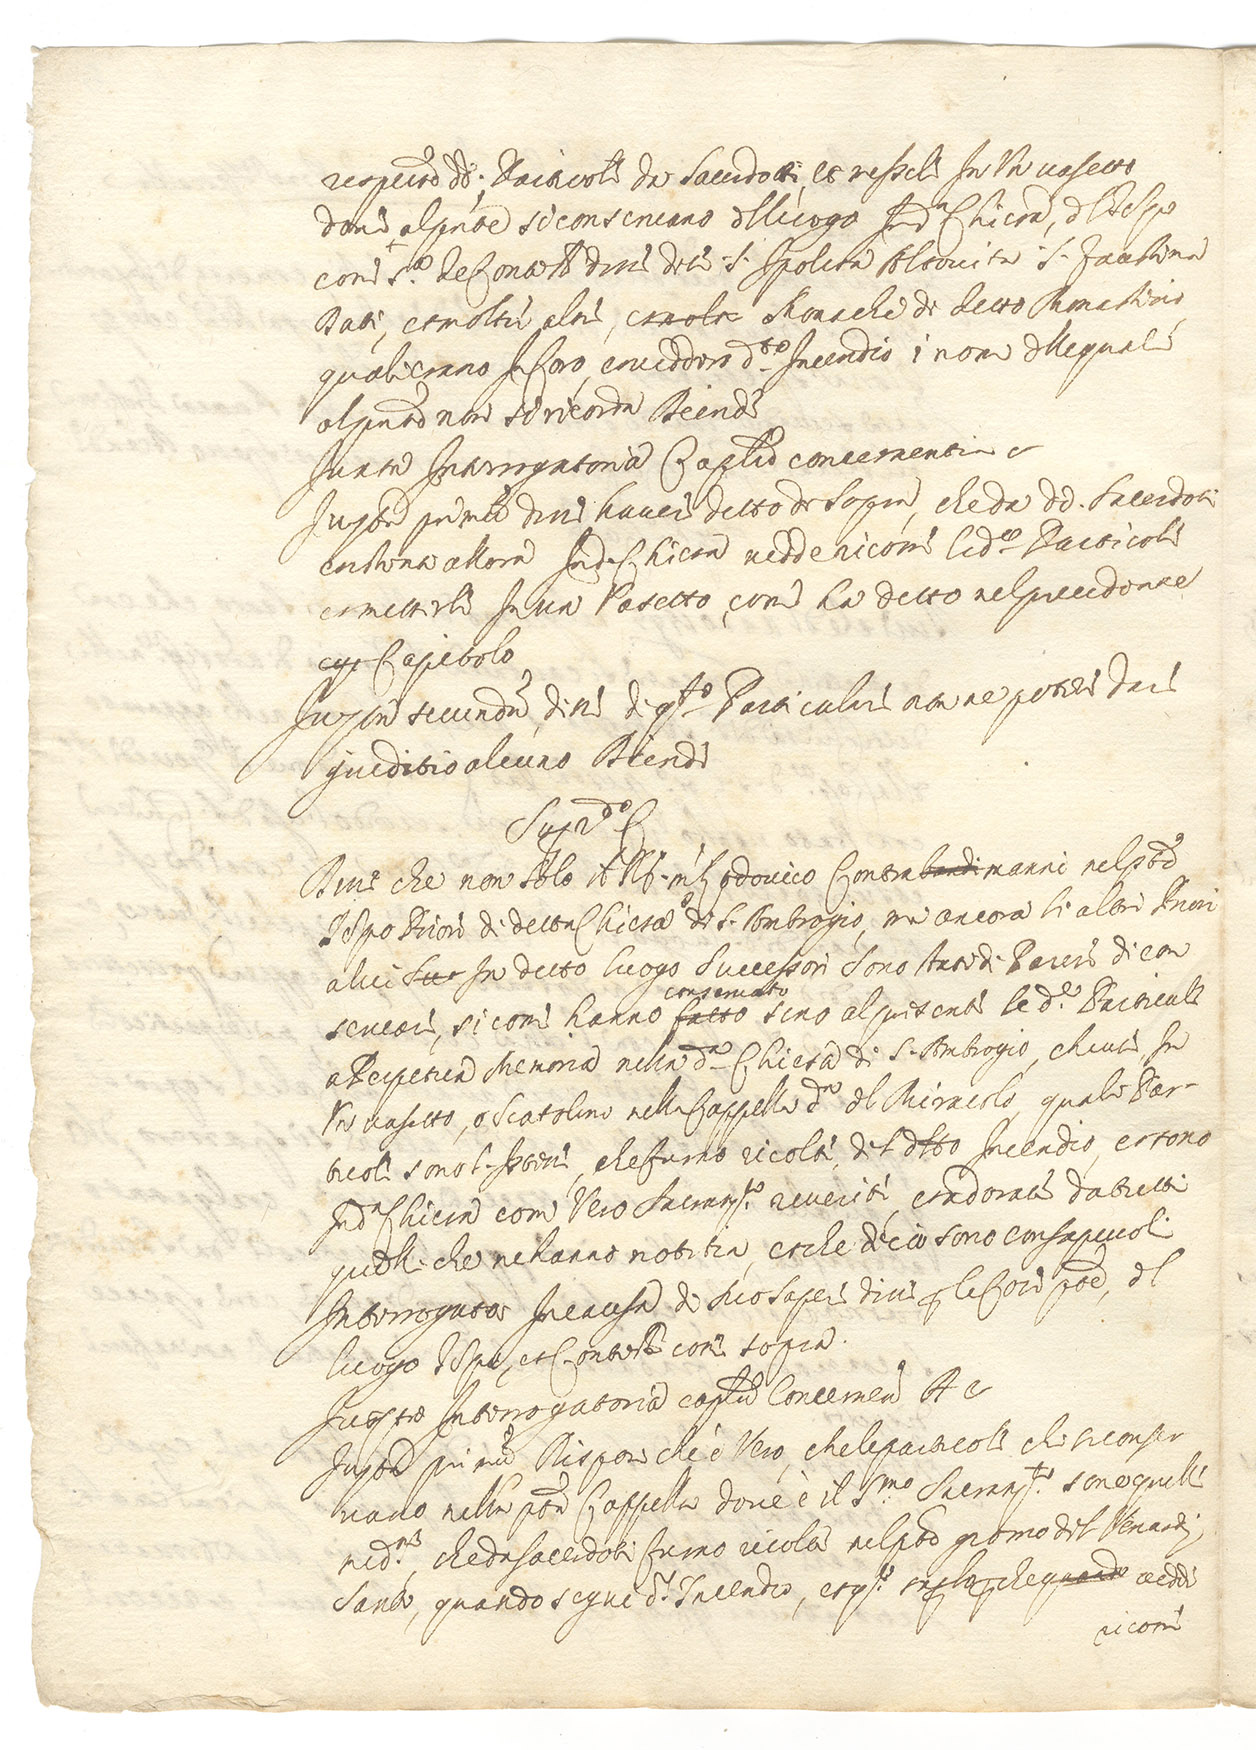 rispetto dd. Particole da Sacerdoti, et messele In Un vasetto
dove al pnte si conservano del luogo In da Chiesa, del Tempo
come sa.
Badi, et molte altre, et molte Monache di detto Monasterio,
quali erano In Coro, et viddero do Incendio i nomi delle quali
al pnte non si ricorda
Iuxta Interrogatoria Caplo concernentia
Iuxta primum dixit haver detto di sopra, che da dd. Sacerdoti
In da Chiesa vedde ricorre le de Particole
et metterle In un Vasetto, come ha detto nel precedente
cap Capitolo
Iuxta secundum, dixit di qsto Particulare non ne poter dare
giuditio alcuno
Supr. do C
Dixit che non solo il Lodovico Contrabandimanni nel pto
Tempo Priore di detta Chiesa di S. Ambrogio, ma ancora li altri Priori
a lui Suc In detto luogo Successori Sono stati di Parere di con
servare, si come hanno fatto conservato sino al presente le de Particole
a Perpetua Memoria nella da Chiesa di S. Ambrogio, chiuse In
Un vasetto, o Scatolino nella Cappella da del Miracolo, quale Par-
ticole sono l'istesse, che furno ricolte, del detto Incendio, et sono
In da Chiesa come Vero Sacramto. reverite, et adorate da tutti
quelli che ne hanno notitia, et che di ciò sono consapevoli
Interrogatus In causa di suo sapere dixit per le cose pte, del
luogo Tempo, et Contesti come sopra.
Iuxta Interrogatoria caplo Concernen
Iuxta primum Rispose che è Vero, che le particole che si conser
vano nella pta Cappella dove è il Smo Sacramto. sono quelle
medme, che da Sacerdoti furno ricolte nel pto giorno del Venardi
Santo, quando seguì do Incendio, et che quando vedde
ricorre